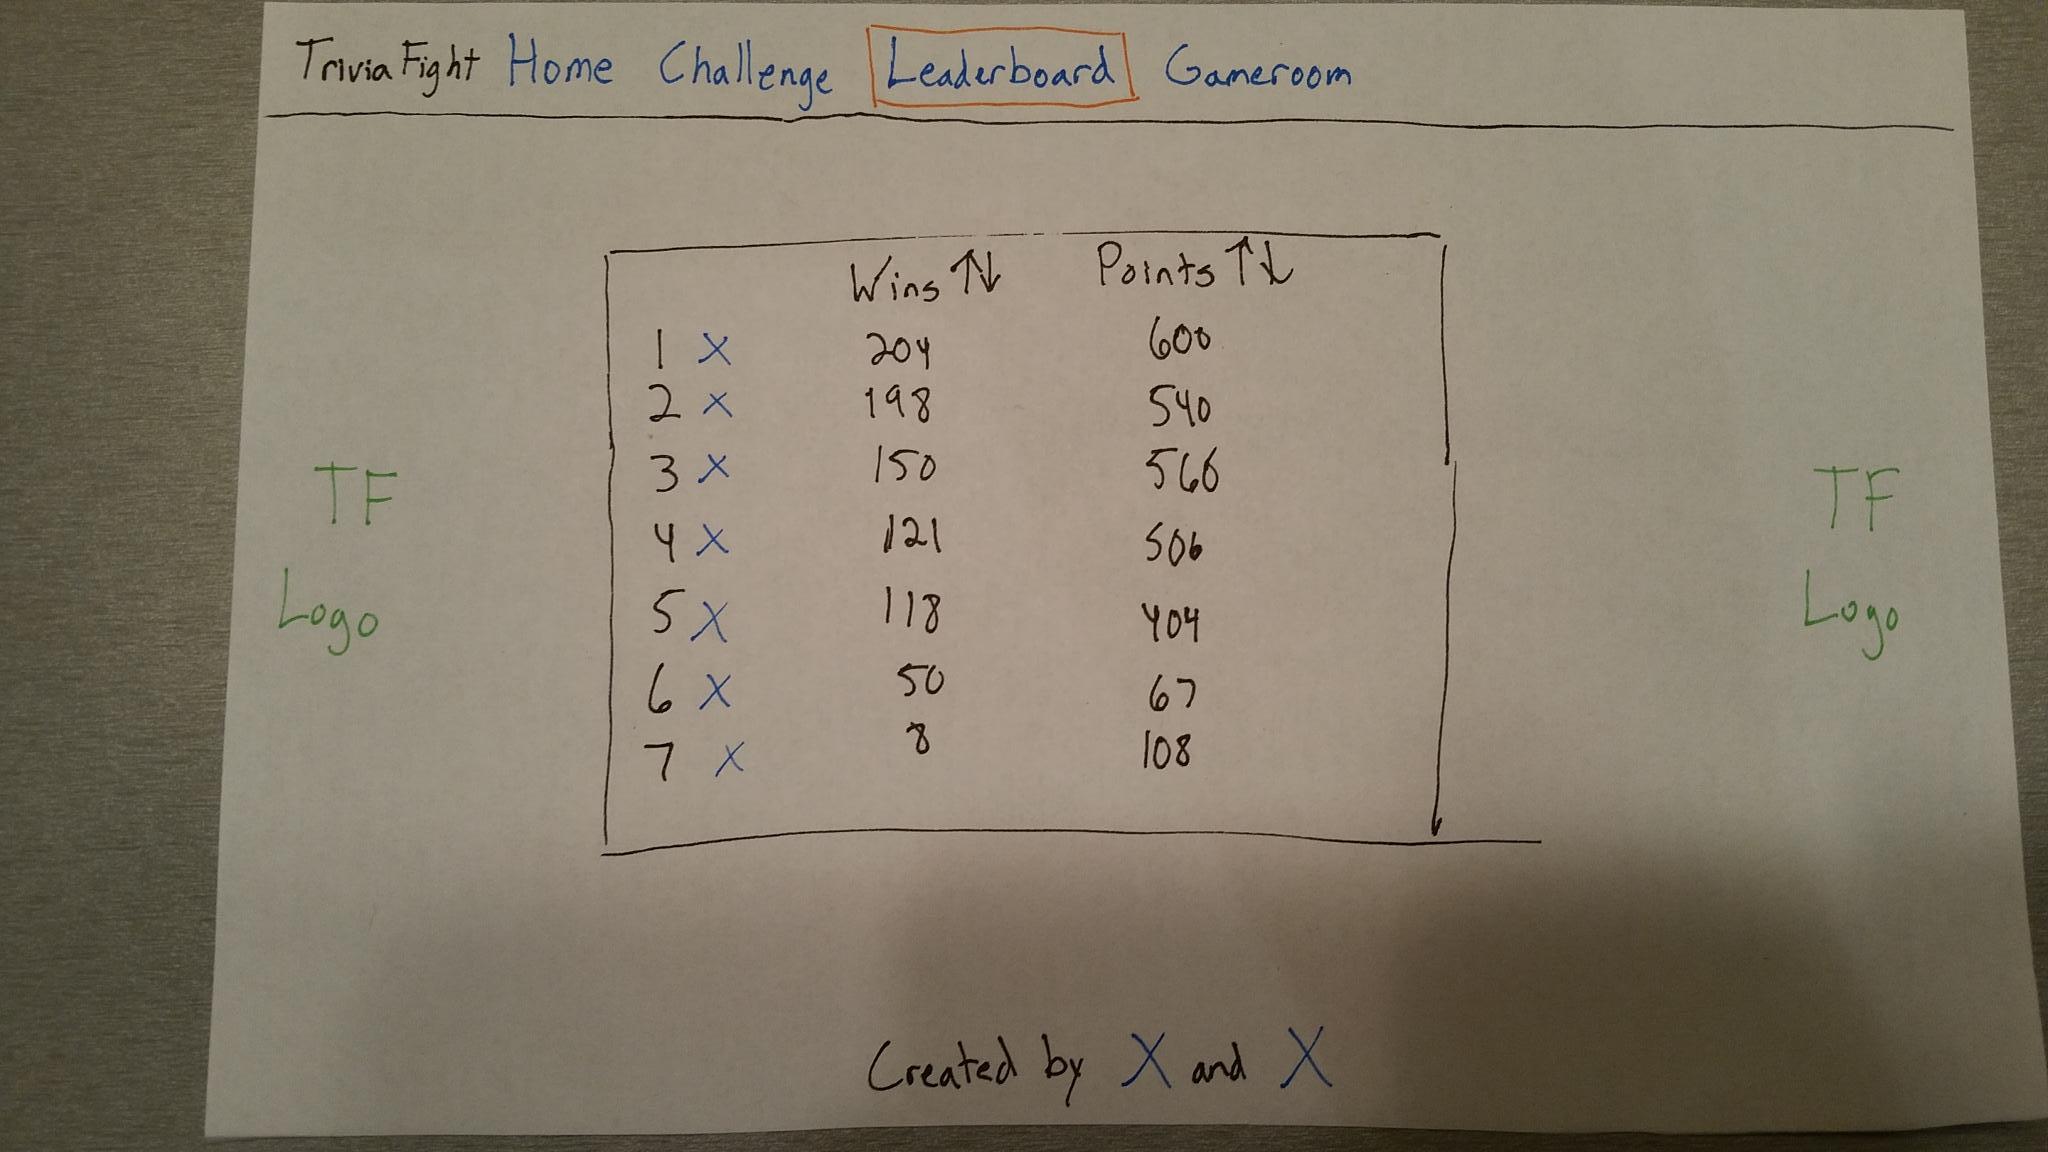 Trivia Fight Home Challenge Leaderboard Gameroom
Wins ↑↓ Points ↑↓
1 X 204 600
2 X 198 540
3 X 150 566
4 X 121 506
5 X 118 404
6 X 50 67
7 X 8 108
TF TF
Logo Logo
Created by X and X